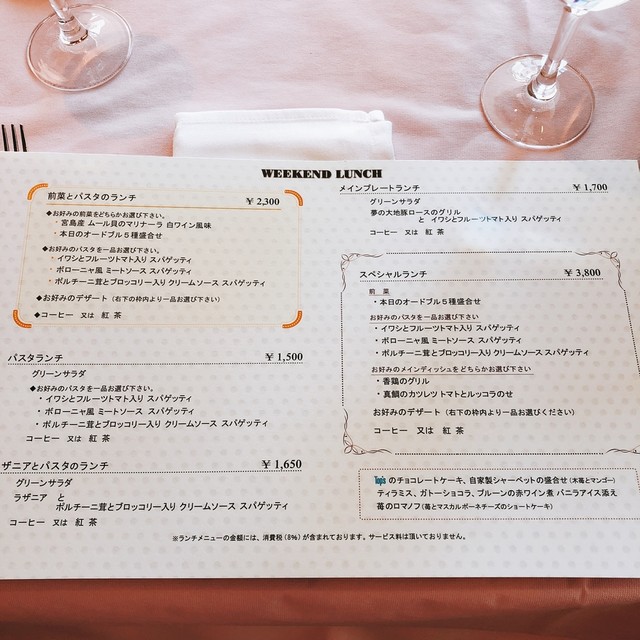 WEEKEND LUNCH
前菜とパスタのランチ ￥2,300
◆お好みの前菜をどちらかお選び下さい。
・宮島産 ムール貝のマリナーラ 白ワイン風味
・本日のオードブル５種盛合せ
◆お好みのパスタを一品お選び下さい。
・イワシとフルーツトマト入り スパゲッティ
・ボローニャ風 ミートソース スパゲッティ
・ポルチーニ茸とブロッコリー入り クリームソース スパゲッティ
◆お好みのデザート（右下の枠内より一品お選び下さい）
◆コーヒー 又は 紅 茶
パスタランチ ￥1,500
グリーンサラダ
◆お好みのパスタを一品お選び下さい。
・イワシとフルーツトマト入り スパゲッティ
・ボローニャ風 ミートソース スパゲッティ
・ポルチーニ茸とブロッコリー入り クリームソース スパゲッティ
コーヒー 又は 紅 茶
ザニアとパスタのランチ ￥1,650
グリーンサラダ
ラザニア と
ポルチーニ茸とブロッコリー入り クリームソース スパゲッティ
コーヒー 又は 紅 茶
メインプレートランチ ￥1,700
グリーンサラダ
夢の大地豚ロースのグリル
と イワシとフルーツトマト入り スパゲッティ
コーヒー 又は 紅 茶
スペシャルランチ ￥3,800
前 菜
・本日のオードブル５種盛合せ
お好みのパスタを一品お選び下さい
・イワシとフルーツトマト入り スパゲッティ
・ボローニャ風 ミートソース スパゲッティ
・ポルチーニ茸とブロッコリー入り クリームソース スパゲッティ
お好みのメインディッシュをどちらかお選び下さい
・香鶏のグリル
・真鯛のカツレツ トマトとルッコラのせ
お好みデザート（右下の枠内より一品お選びください）
コーヒー 又は 紅 茶
のチョコレートケーキ、自家製シャーベットの盛合せ（木苺とマンゴー）
ティラミス、ガトーショコラ、プルーンの赤ワイン煮 バニラアイス添え
苺のロマノフ（苺とマスカルポーネチーズのショートケーキ）
※ランチメニューの金額には、消費税（8%）が含まれております。サービス料は頂いておりません。